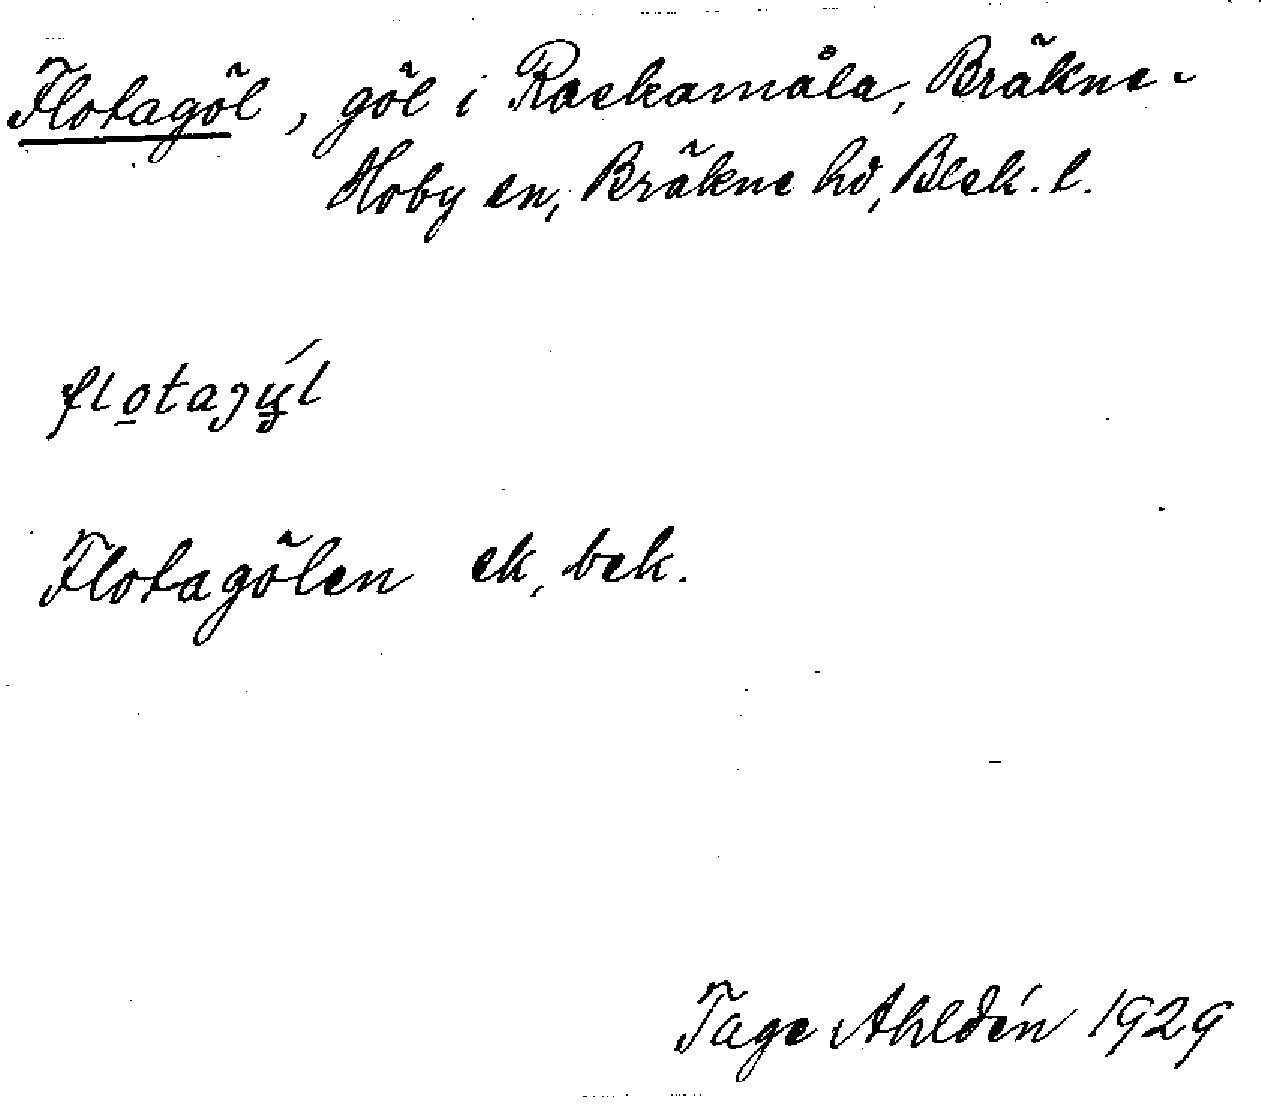 Flotagöl, göl i Raskamåla, Bräkne-
Hoby sn, Bräkne hd, Blek. l.
flotagyl
Flotagölen ek, bek.
Tage Ahldén 1929